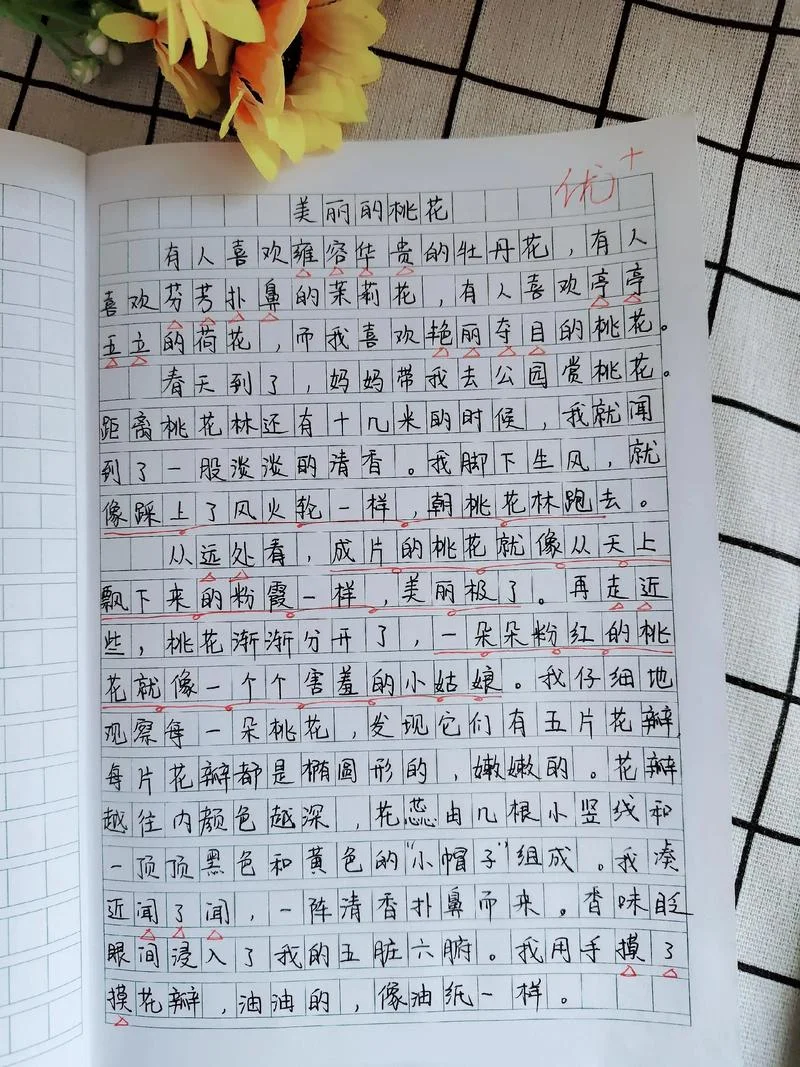 优+
美丽的桃花
有人喜欢雍容华贵的牡丹花，有人
喜欢芬芳扑鼻的茉莉花，有人喜欢亭亭
玉立的荷花，而我喜欢艳丽夺目的桃花。
春天到了，妈妈带我去公园赏桃花。
距离桃花林还有十几米的时候，我就闻
到了一股淡淡的清香。我脚下生风，就
像踩上了风火轮一样，朝桃花林跑去。
从远处看，成片的桃花就像从天上
飘下来的粉霞一样，美丽极了。再走近
些，桃花渐渐分开了，一朵朵粉红的桃
花就像一个个害羞的小姑娘。我仔细地
观察每一朵桃花，发现它们有五片花瓣，
每片花瓣都是椭圆形的，嫩嫩的。花瓣
越往内颜色越深，花蕊由几根小竖线和
一顶顶黑色和黄色的“小帽子”组成。我凑
近闻了闻，一阵清香扑鼻而来。香味眨
眼间浸入了我的五脏六腑。我用手摸了
摸花瓣，油油的，像油纸一样。